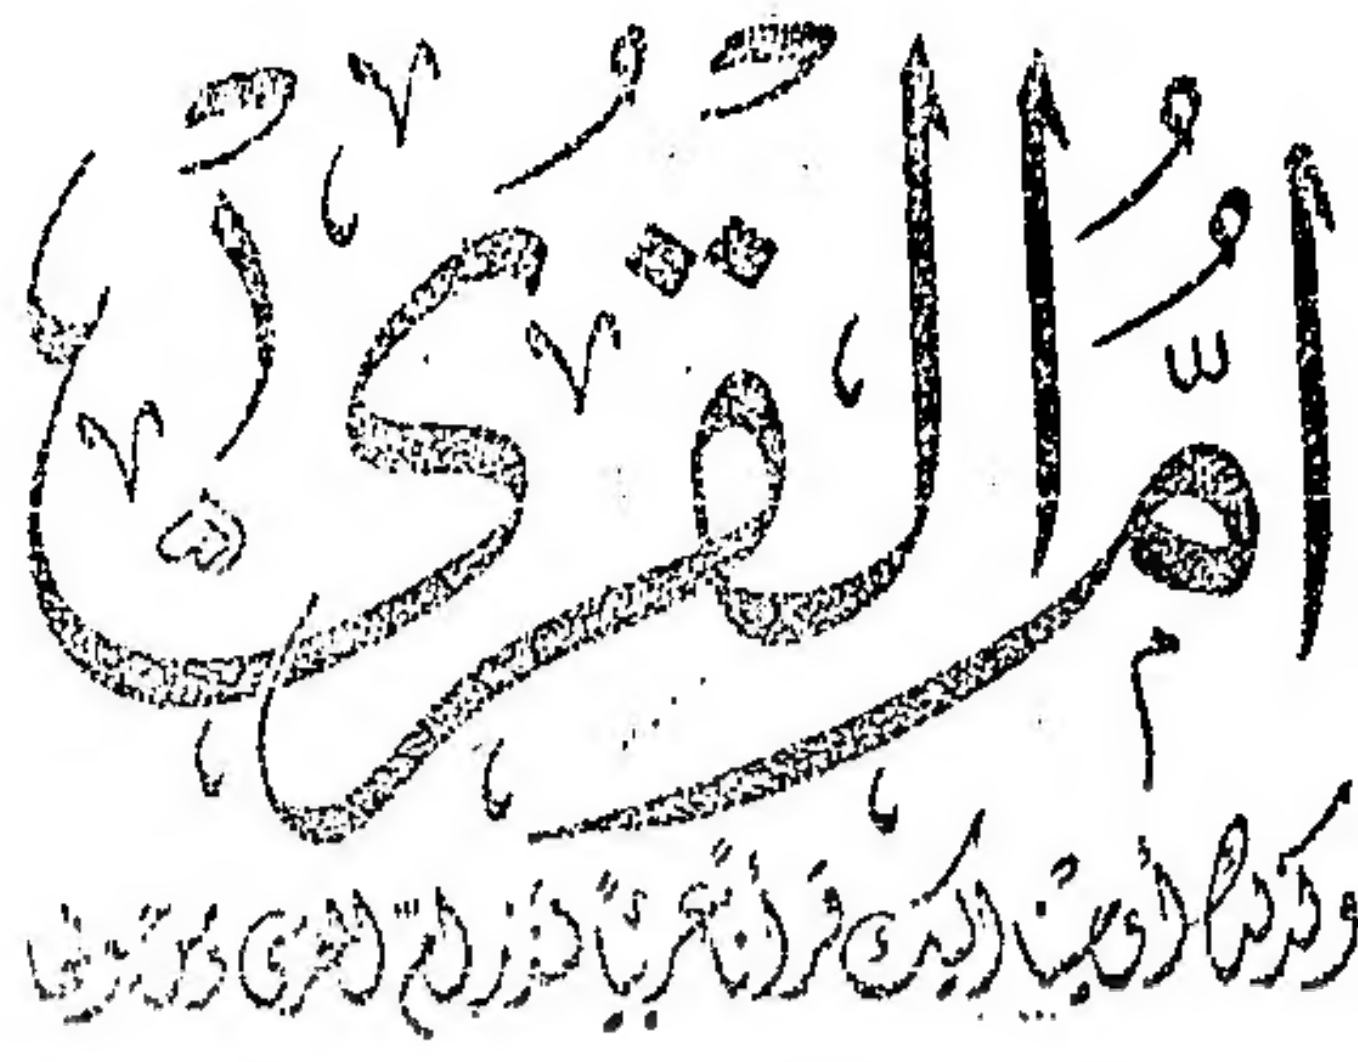 أُمُّ الْقُرَىٰ
وكذلك أوحينا إليك قرآنًا عربيًّا لتنذر أم القرى ومن حولها